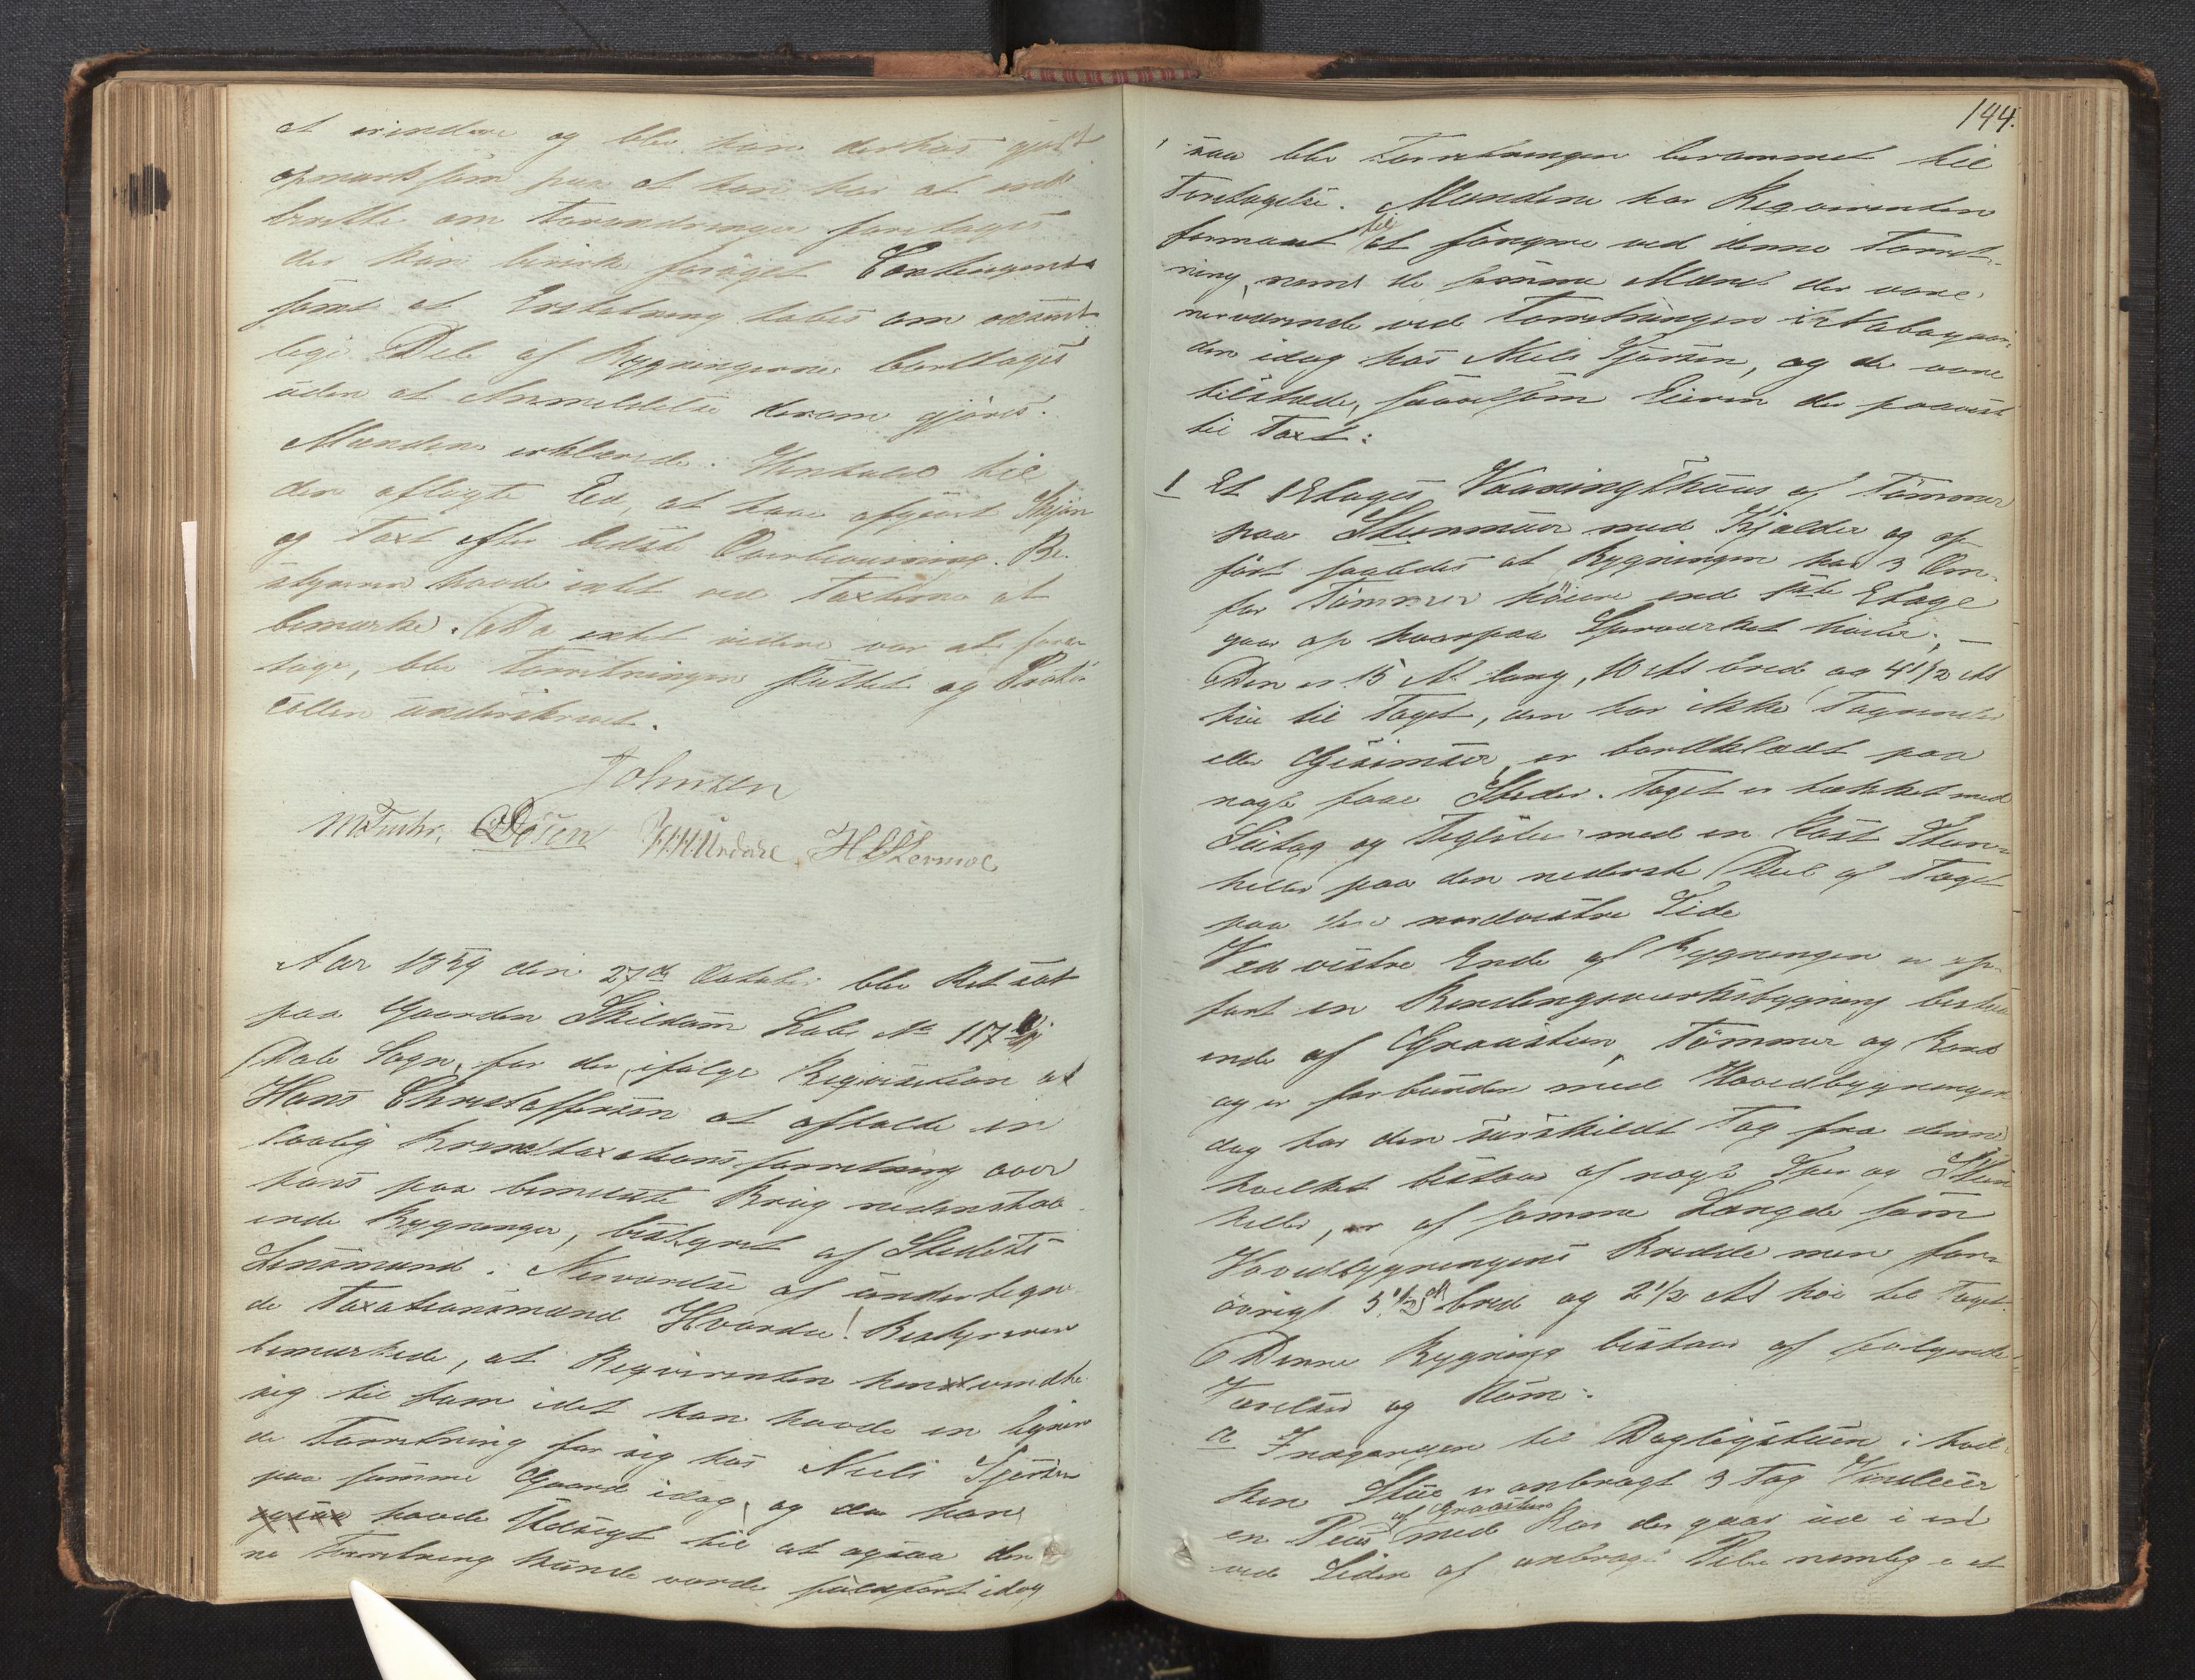 at erindre og blev han derhos gjort
opmærksom paa at han har at ind
berette om Forandringer foretages
der kan bevirke forøget Contingent
samt at Erstatning tabes om væsent
lige Dele af Bygningerne borttages
uden at Anmeldelse derom gjøres.
Mændene erklærede i Henhold til
den aflagte Eed, at have afgivet Skjøn
og Taxt efter bedste Overbeviisning. Be
styreren havde intet ved Taxterne at
bemærke. Da intet videre var at fore
tage, blev Forretningen sluttet og Proto
collen underskrevet.
Johnsen
Aar 1859 den 27de October blev Ret sat
paa Gaarden Skildam Løbe No 117
Dale Sogn, for der ifølge Reqvisition af
Hans Christoffersen at afholde en
lovlig Brandtaxationsforretning over
hans paa bemeldte Brug nedenstaa
ende Bygninger, bestyret af Stedets
Lensmand i Nærværelse af undertegne
de Taxationsmænd Hvorda! Bestyreren
bemærkede, at Reqvirenten henvendte
sig til ham idet han havde en lignen
de Forretning for sig hos Niels
paa samme Gaard idag, og da han
ogsaa havde Udsigt til at ogsaa den
ne Forretning kunde vorde fuldført idag
144.
saa blev Forretningen berammet til
Foretagelse. Mændene har Reqvirenten
formaaet til at fungere ved denne Forret
ning, nemlig de samme Mænd der vare
nærværende ved Forretningen i Nabogaar
den idag hos Niels, og de vare
tilstæde, saavelsom Eieren der paaviste
til Taxt:
1 Et 1 Etages Vaaningshuus af Tømmer
paa Steenmuur med Kjelder og op
ført saaledes at Bygningen har 3 Om
far Tømmer høiere end 1ste Etage
gaar op hvorpaa Sparværket hviler; —
Den er 15 Al lang, 10 Al bred og 4 1/2 Al
høi til Taget, den har ikke Tagrender
eller Gesimser, er bordklædt paa
nogle faae Steder. Taget er tækket med
Sutag og Teglsteen med en Rast Steen
heller paa den nederste Deel af Taget
paa den nordvestre Side
Ved vestre Ende af Bygningen er op
ført en Bindingsværksbygning bestaa
ende af Graasteen, Tømmer og Bord
og er forbunden med Hovedbygningen
dog har den særskildt Tag fra denne
hvilket bestaar af nogle og Steen
heller, er af samme Længde som
Hovedbygningens Bredde men for
øvrigt 5 1/2 Al bred og 2 1/2 Al høi til Taget.
Denne Bygning bestaar af følgende
Værelser og Rum:
a Indgangen til Dagligstuen i hvil
ken Stue er anbragt 3 Fag Vinduer
en Peis af Graasteen med Rør der gaar ud i en
ved Siden af anbragt Pibe nemlig i et